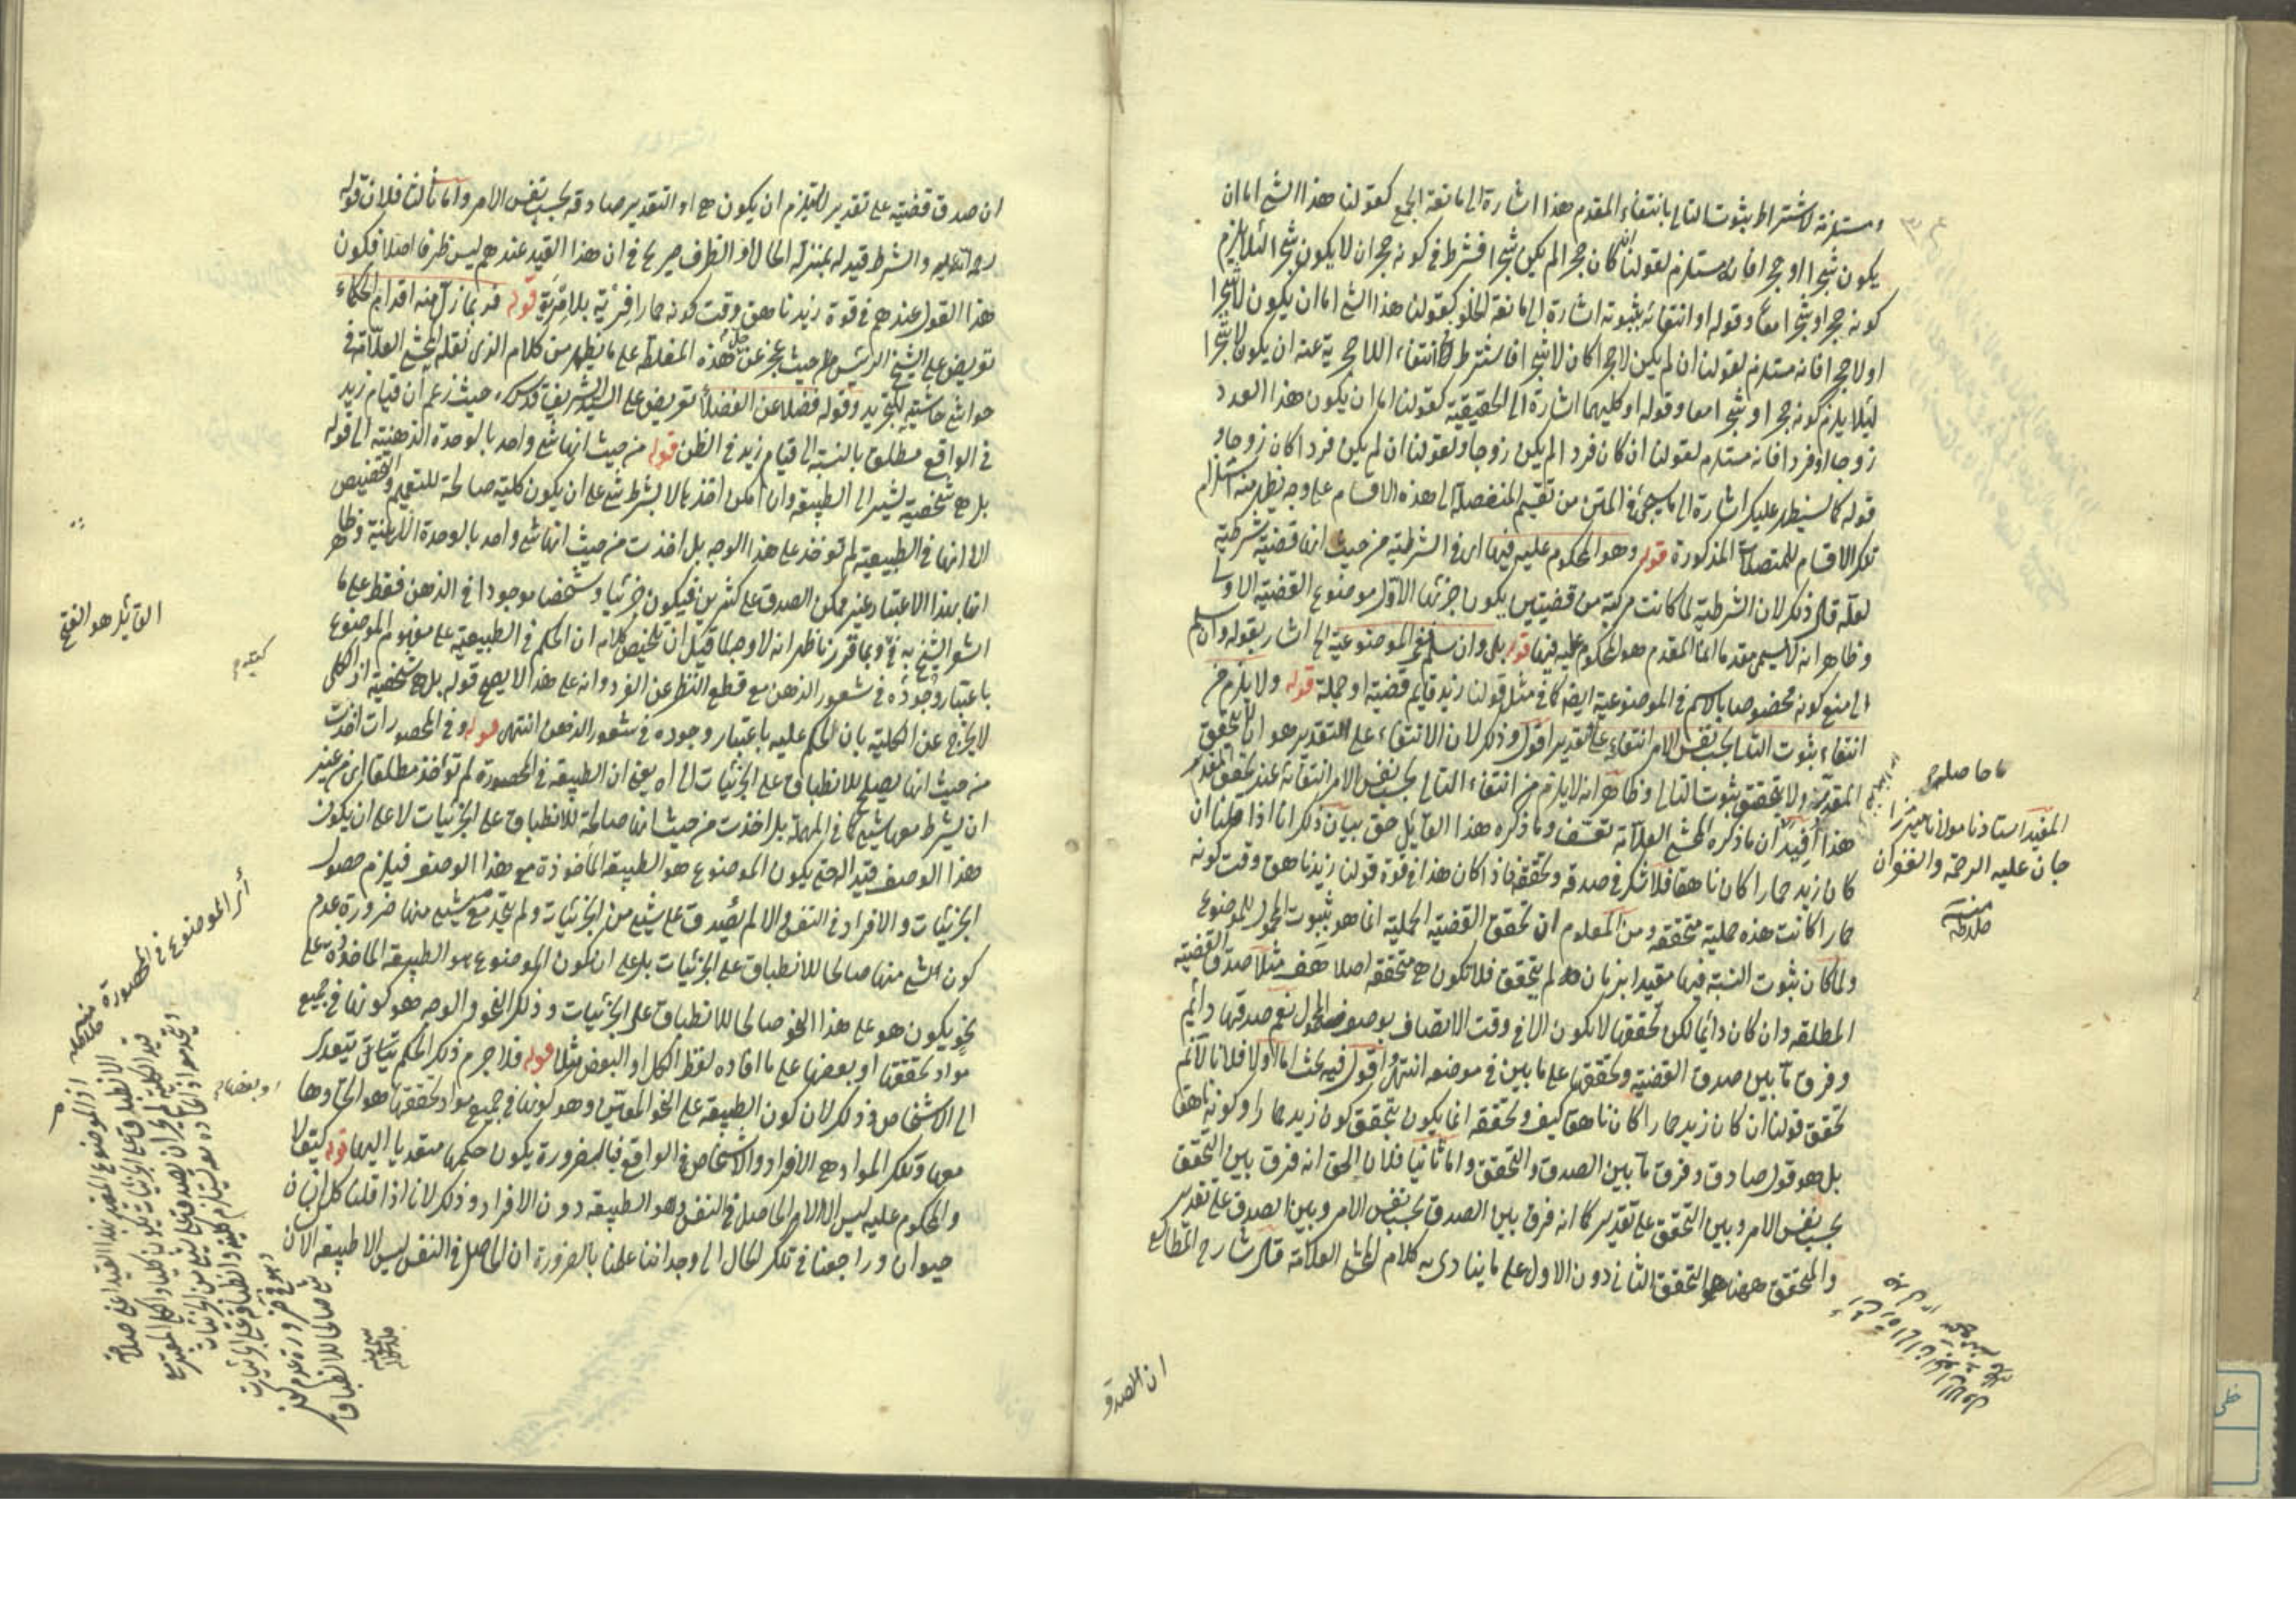 مستلزمة لاشتراط بثبوت التالى بانتفاء المقدم هذا اشارة الى مانعة الجمع كقولنا هذا الشئ اما ان
يكون شجرا او حجرا فانه مستلزم لقولنا ان كان حجرا لم يكن شجرا فشرط فى كونه حجرا ان لا يكون شجرا لئلا يلزم
كونه حجرا وشجرا معا وقوله او انتفائه بثبوته اشارة الى مانعة الخلو كقولنا هذا الشئ اما ان يكون لا شجرا
او لا حجرا فانه مستلزم لقولنا ان لم يكن لا حجرا كان لا شجرا فاشترط انتفاء اللاحجرية عنه ان يكون لا شجرا
لئلا يلزم كونه حجرا وشجرا معا وقوله او كليهما اشارة الى الحقيقية كقولنا اما ان يكون هذا العدد
زوجا او فردا فانه مستلزم لقولنا ان كان فردا لم يكن زوجا ولقولنا ان لم يكن فردا كان زوجا و
قوله كما سيظهر عليك اشارة الى ما سيجئ فى المتن من تقسيم المنفصلة الى هذه الاقسام على وجه يظهر منه استلزام
تلك الاقسام للمتصلات المذكورة قوله وهو المحكوم عليه فيها اى فى الشرطية من حيث انها قضية شرطية
لعله قال ذلك لان الشرطية لما كانت مركبة من قضيتين يكون جزئها الاول موضوع القضية الاولى
وظاهر انه لا يسمى مقدما انما المقدم هو المحكوم عليه فيها قوله بل وان سلم فى الموضوعية الخ اشار بقوله وان سلم
الى منع كونه مخصوصا بالاسم فى الموضوعية ايضا كما فى مثل قولنا زيد قائم قضية او جملة قوله ولا يلزم من
انتفاء ثبوت التالى بحسب نفس الامر انتفاءه على التقدير اقول وذلك لان الانتفاء على التقدير هو ان يتحقق
المقدم ولا يتحقق ثبوت التالى وظاهر انه لا يلزم من انتفاء التالى بحسب نفس الامر انتفائه عند تحقق المقدم
هذا افيد ان ما ذكره المحشى العلامة تعسف وما ذكره هذا القائل حق بيان ذلك انا اذا قلنا ان
كان زيد حمارا كان ناهقا فلا شك فى صدقه وتحققه فاذا كان هذا فى قوة قولنا زيد ناهق وقت كونه
حمارا كانت هذه حملية متحققة ومن المعلوم ان تحقق القضية الحملية انما هو بثبوت المحمول للموضوع
ولما كان ثبوت النسبة فيها مقيدا بزمان لم يتحقق فلا تكون هى متحققة اصلا هف مثلا صدق القضية
المطلقة وان كان دائما لكن تحققها لا يكون الا فى وقت الاتصاف بوصف المحمول نعم صدقها دائم
وفرق ما بين صدق القضية وتحققها على ما بين فى موضعه انتهى واقول فيه بحث اما اولا فلانا لا نم
تحقق قولنا ان كان زيد حمارا كان ناهقا كيف وتحققه انما يكون بتحقق كون زيد حمارا وكونه ناهقا
بل هو قول صادق وفرق ما بين الصدق والتحقق واما ثانيا فلان الحق انه فرق بين التحقق
بحسب نفس الامر وبين التحقق على تقدير كما انه فرق بين الصدق بحسب نفس الامر وبين الصدق على تقدير
والمتحقق ههنا هو التحقق الثانى دون الاول على ما ينادى به كلام المحشى العلامة قال شارح المطالع
ما حاصله
المفيد استاذنا مولانا ميرزا
جان عليه الرحمة والغفران
منه
ان الصدق
ان صدق قضية على تقدير لا يستلزم ان يكون هى او التقدير صادقة بحسب نفس الامر واما ثالثا فلان قوله
رحمة الله عليه والشرط قيد له بمنزلة الحال او الظرف صريح فى ان هذا القيد عندهم ليس ظرفا اصلا فكون
هذا القول عندهم فى قوة زيد ناهق وقت كونه حمارا فرية بلا مرية قوله فربما زل منه اقدام الحكماء
تعريض على الشيخ الرئيس حيث عجز عن حل هذه المغلطة على ما يظهر من كلام الذى نقله المحشى العلامة فى
حواشى حاشية التجريد وقوله فضلا عن الفضلاء تعريض على السيد الشريف قدس سره حيث زعم ان قيام زيد
فى الواقع مطلق بالنسبة الى قيام زيد فى الظن قوله من حيث انها شئ واحد بالوحدة الذهنية الى قوله
بل هى شخصية يشير الى الطبيعة وان امكن اخذها لا بشرط شئ على ان يكون كلية صالحة للتعميم والتخصيص
الا انها فى الطبيعية لم تؤخذ على هذا الوجه بل اخذت من حيث انها شئ واحد بالوحدة الذهنية وظاهر
انها بهذا الاعتبار غير ممكن الصدق على كثيرين فيكون جزئيا وشخصا موجودا فى الذهن فقط على ما
اشعر الشيخ به وبما قررنا ظهر انه لا وجه لما قيل ان تلخيص كلامه ان الحكم فى الطبيعية على مفهوم الموضوع
باعتبار وجوده فى شعور الذهن مع قطع النظر عن الفرد وانه على هذا لا يصح قوله بل هى شخصية اذ الكلى
لا يخرج عن الكلية بان الحكم عليه باعتبار وجوده فى شعور الذهن انتهى قوله وفى المحصورات اخذت
من حيث انها يصلح للانطباق على الجزئيات الى اه يعنى ان الطبيعة فى المحصورة لم تؤخذ مطلقا اى من غير
ان يشرط معها شئ كما فى المهملة بل اخذت من حيث انها صالحة للانطباق على الجزئيات لا على ان يكون
هذا الوصف قيدا له حتى يكون الموضوع هو الطبيعة المأخوذة مع هذا الوصف فيلزم حصول
الجزئيات والافراد فى النفس والا لم يصدق على شئ من الجزئيات ولم يتحد مع شئ منها ضرورة عدم
كون الشئ منها صالحا للانطباق على الجزئيات بل على ان يكون الموضوع هو الطبيعة المأخوذة على
نحو يكون هو على هذا النحو صالحا للانطباق على الجزئيات وذلك النحو والوجه هو كونها فى جميع
مواد تحققها او بعضها على ما افاده لفظ الكل او البعض مثلا قوله فلا جرم ذلك الحكم يتأتى يتعدى
الى الاشخاص وذلك لان كون الطبيعة على النحو المعين وهو كونها فى جميع مواد تحققها هو اتحادها
معها وتلك المواد هى الافراد والاشخاص فى الواقع فبالضرورة يكون حكمها متعديا اليها قوله كيف لا
والمحكوم عليه ليس الا الامر الحاصل فى النفس وهو الطبيعة دون الافراد وذلك لانا اذا قلنا كل انسان
حيوان وراجعنا فى تلك الحال الى وجداننا علمنا بالضرورة ان الحاصل فى النفس ليس الا طبيعة الان
القائل هو الفتح
او بعضها
اى الموضوع فى المحصورة